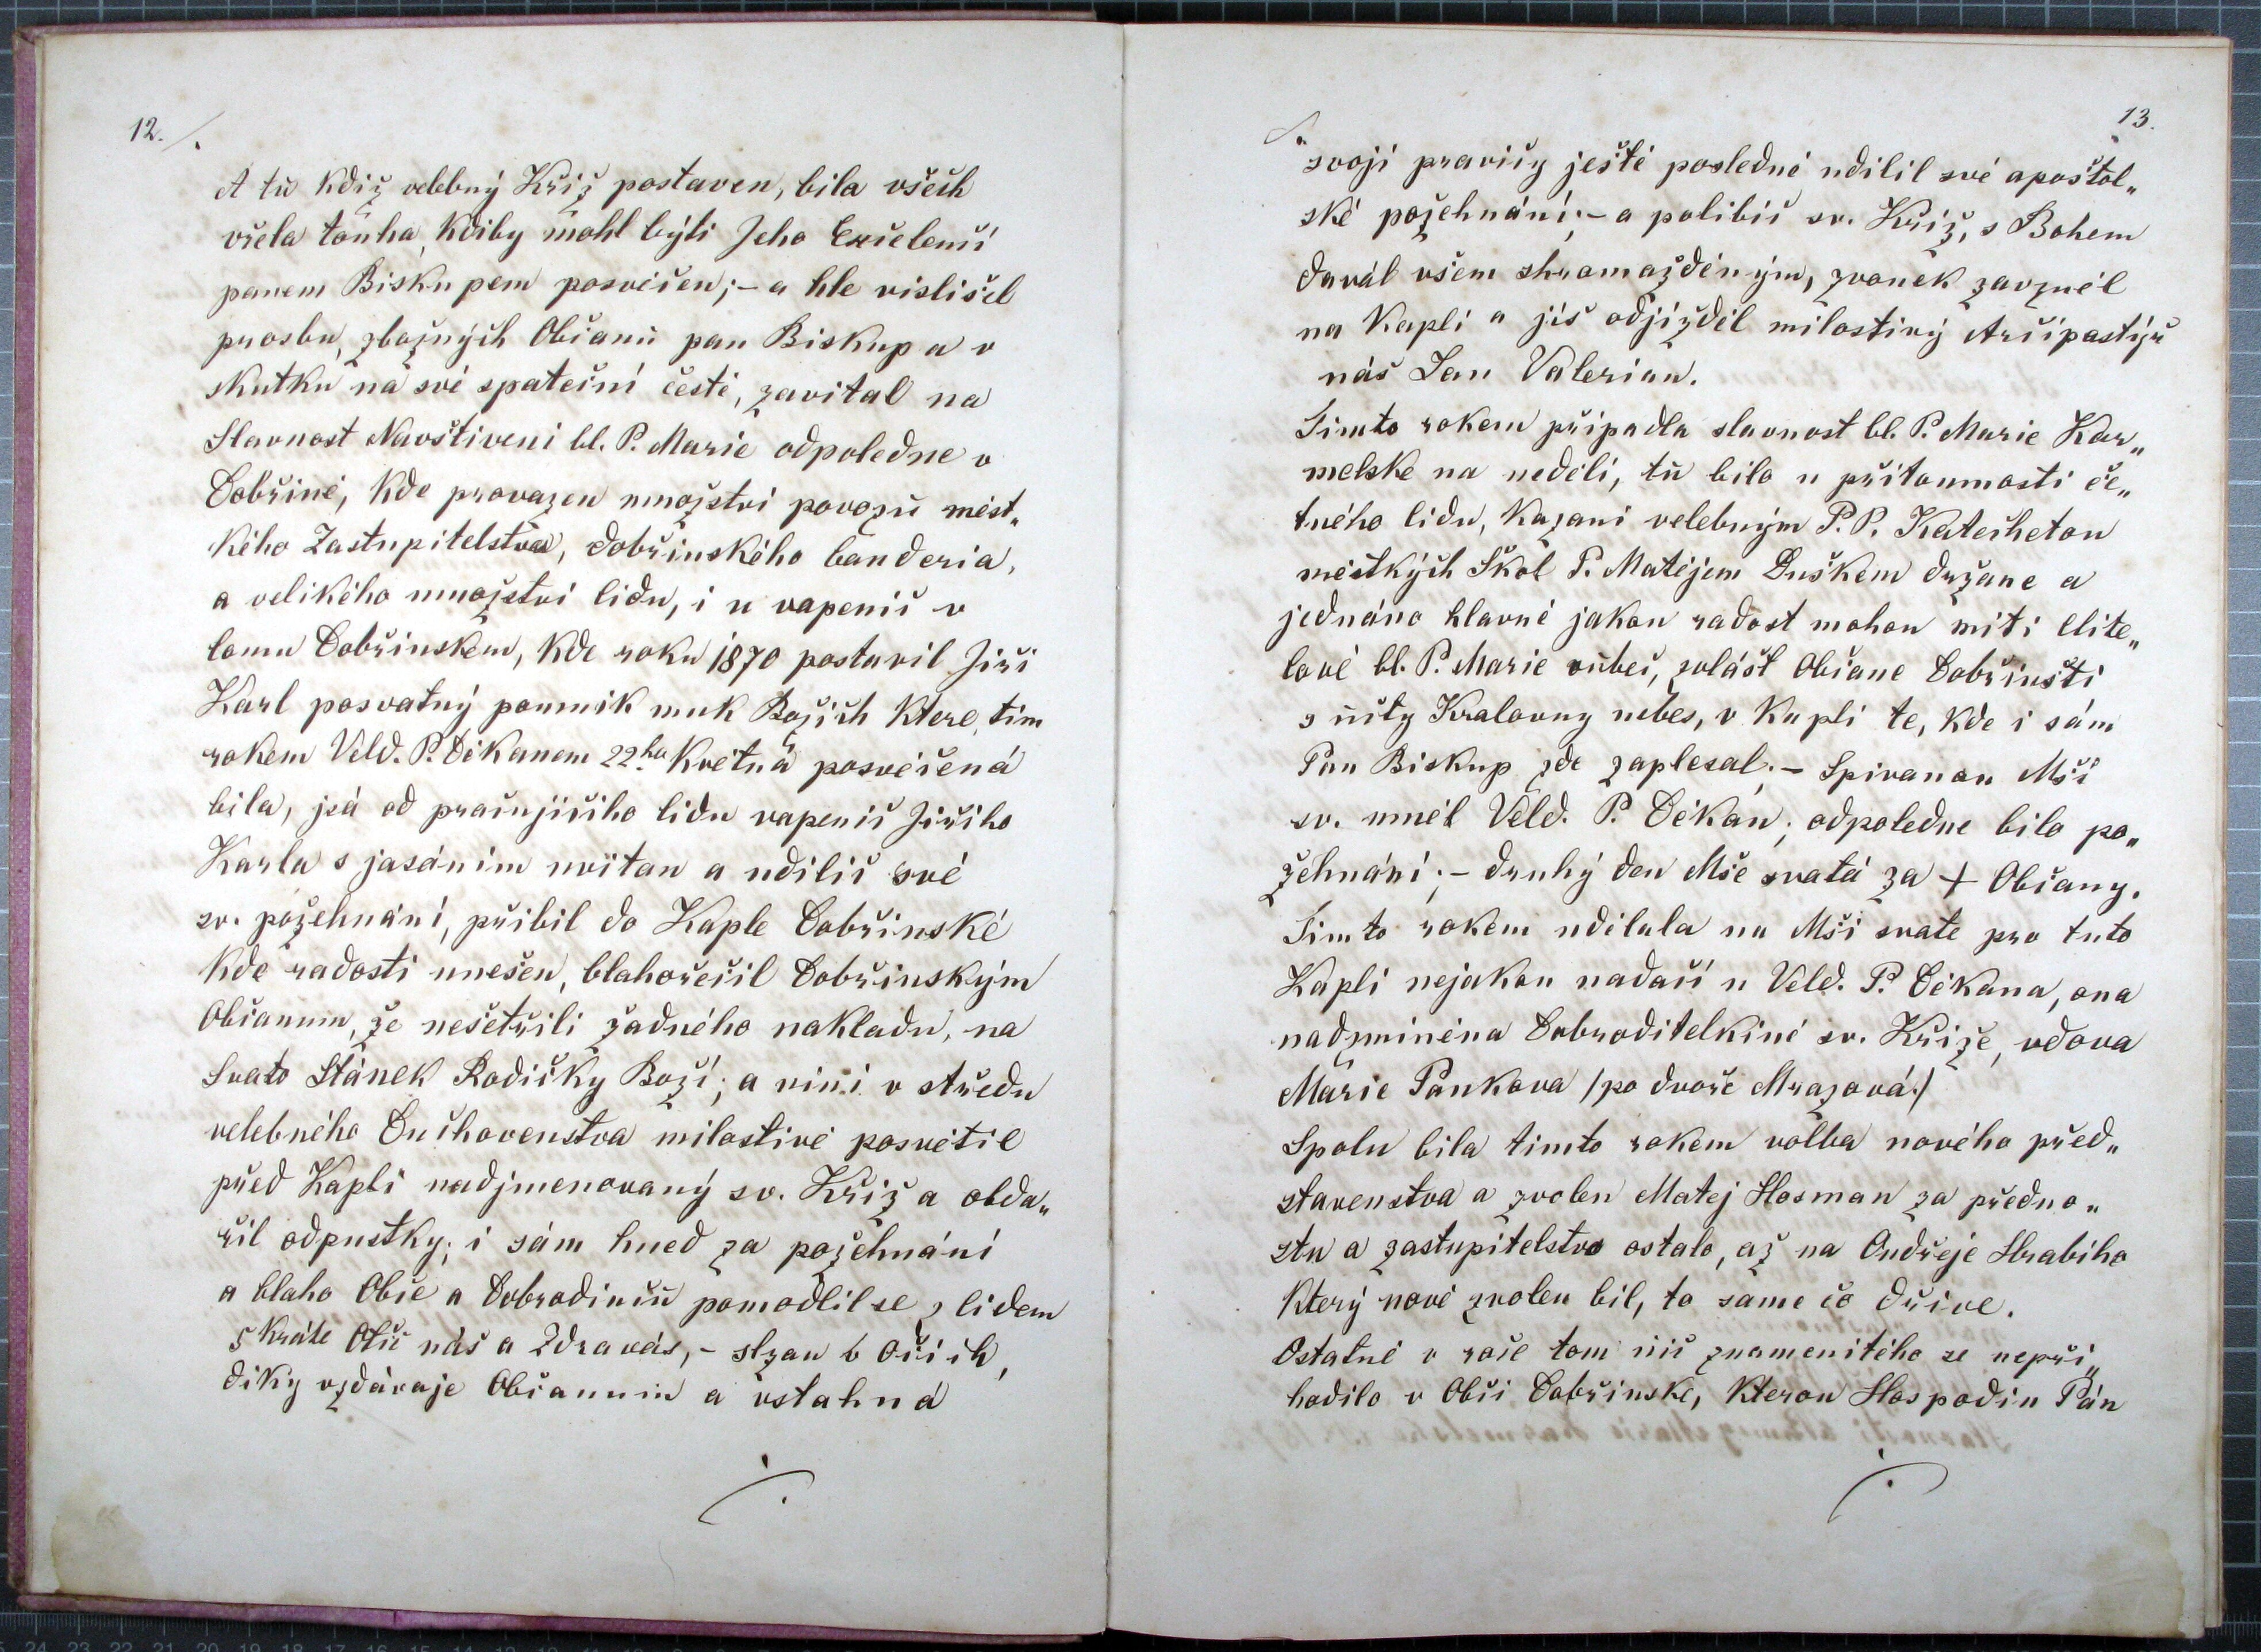 12. /.
A tů kdiž velebný Křiž postaven, bila všech
vřela tonha, kdiby mohl býti Jeho Excelencí
panem Biskupem posvěcen; - a hle vislišel
prosbu, zbožných Občanů pan Biskup a v
skutku na své spatečni česti, zavital na
Slavnost Navštiveni bl. P. Marie odpoledne v
Dobřině, kde provazen množstvi povozů měst„
kého Zastupitelstva, dobřinského banderia,
a velikého množstvi lidu, i u vapenic v
lomu Dobřinskem, kde roku 1870 postavil Jiři
Karl posvatný pomnik muk Božich ktere, tim
rokem Veld. P. Děkanem 22ho Května posvěcená
bila, jsa od pracujiciho lidu vapenic Jiřiho
Karla s jasáním uvitan a udilic své
sv. požehnání, přibil do Kaple Dobřinské
kde radosti unešen, blahořečil Dobřinským
Občanum, že nešetřili žadného nakladu, na
Svato Stánek Rodičky Boží; a nini v středu
velebného Duchovenstva milostivě posvětil
před Kapli nadjmenovaný sv. Křiž a obda„
řil odpustky; i sám hned za požehnání
a blaho Obce a Dobrodincu pomodlil se z lidem
5 krate Otče náš a Zdravas, - slzau v Očich,
diky vzdávaje Občanum a vstahna
./.
/. 13.
svoji pravicy ještě posledně udilil své apoštol„
ské požehnání; - a polibic sv. Křiž, s Bohem
dával všem shromažděným, zvonek zavzněl
na Kapli a jiš odjižděl milostivý Arcipastýř
náš Jan Valerian.
Timto rokem připadla slavnost bl. P. Marie Kar„
melske na neděli, tů bilo u přitomnosti če„
tného lidu, kazani velebným P. P. Katechetou
městkých Škol P. Matějem Duškem držane a
jednáno hlavně jakou radost mohou miti Ctite„
lové bl. P. Marie vůbec, zvlášť Občane Dobřinšti
s ucty Kralovny nebes, v Kapli te, kde i sám
Pan Biskup zde zaplesal. - Spivanou Mši
sv. mněl Veld. P. Děkan; odpoledne bilo po„
žehnání; - druhý den Mše svatá za + Občany.
Timto rokem udělala na Mši svate pro tuto
Kapli nejakou nadaci u Veld. P. Děkana, ona
nadzminěna Dobroditelkině sv. Křiže, vdova
Marie Pankova /po dvoře Mrazová./
Spolu bila timto rokem volba nového před„
stavenstva a zvolen Matej Hosman za předno„
stu a zastupitelstvo ostalo, až na Ondřeje Hrabiho
který nově zvolen bil, to same čo dřive.
Ostatně v roce tom nic znamenitého se nepři„
hodilo v Obci Dobřinske, kterou Hospodin Pán
./.